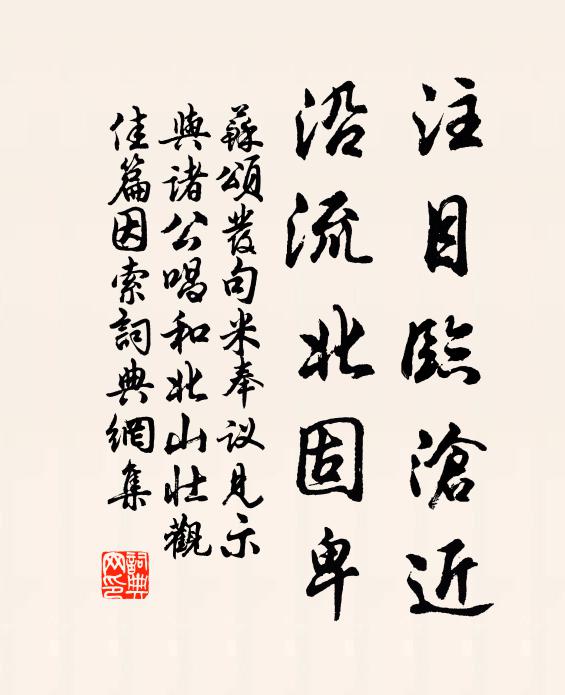 注目臨滄近
沿流北固卑
蘇頌發句米奉议見示
與諸公唱和北山壮觀
佳篇因索詞典網集
詞典网印